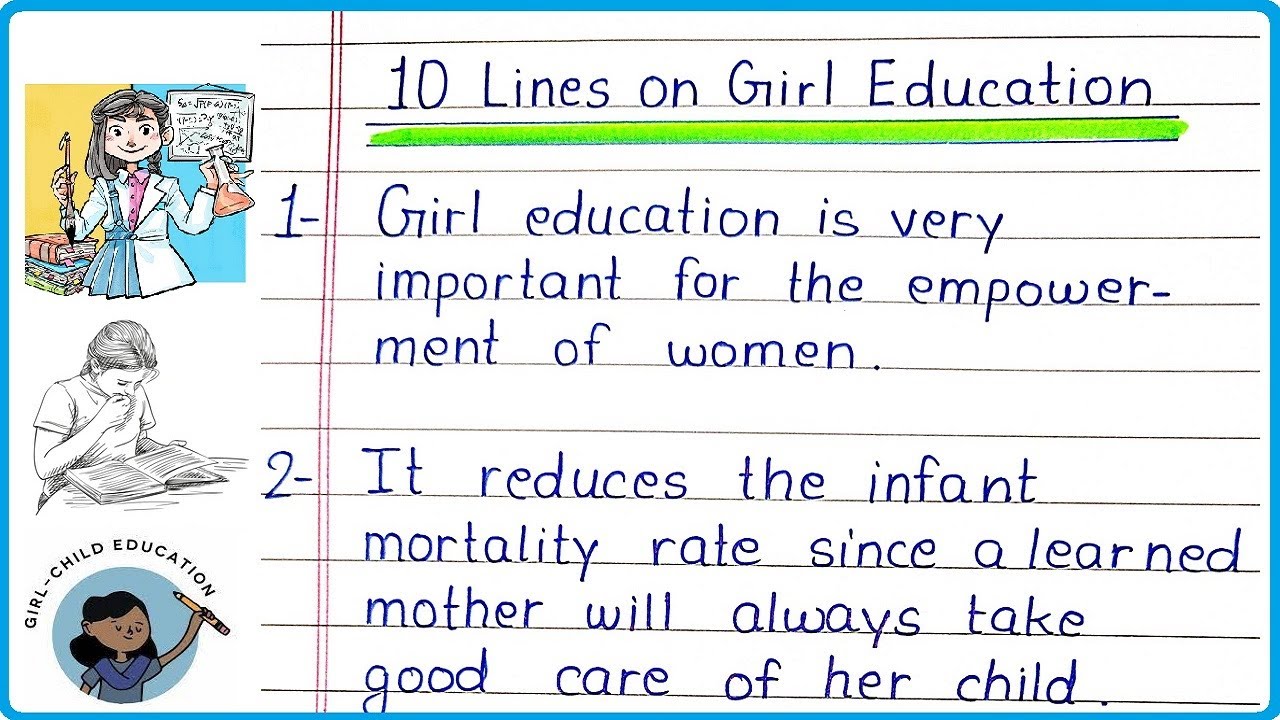 10 Lines on Girl Education
1- Girl education is very
important for the empower-
ment of women.
2- It reduces the infant
mortality rate since a learned
mother will always take
good care of her child.
GIRL-CHILD EDUCATION